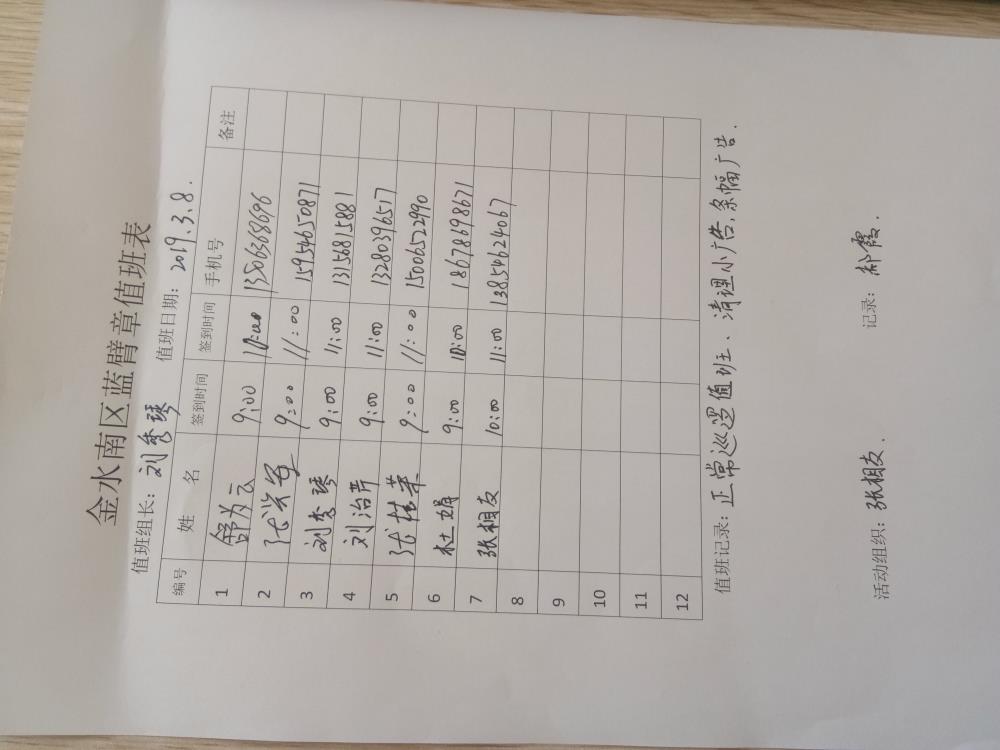 金水南区蓝臂章值班表
值班组长: 刘秀琴 值班日期: 2019.3.8.
编号 姓 名 签到时间 签到时间 手机号 备注
1 舒为云 9:00 10:00 13506368696
2 9:00 11:00 15954650871
3 刘秀琴 9:00 11:00 13156815881
4 刘治芹 9:00 11:00 13280396517
5 张桂荣 9:00 11:00 15006522990
6 杜娟 9:00 10:00 18678698671
7 张相友 10:00 11:00 13854624067
8
9
10
11
12
值班记录: 正常巡逻值班、清理小广告,条幅广告.
活动组织: 张相友. 记录: 郝霞.